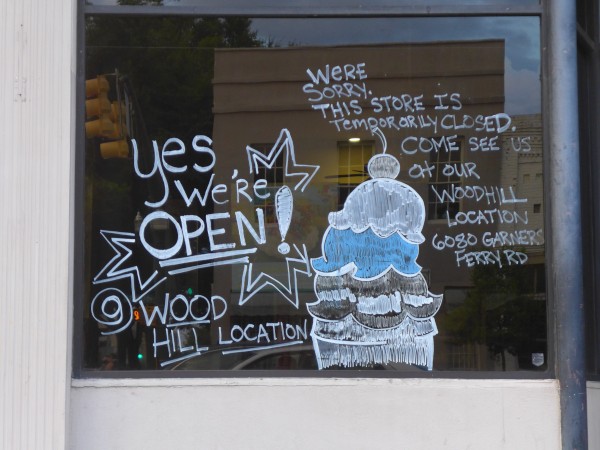 yes
we're
OPEN!
@ WOOD
HILL LOCATION
WERE
SORRY.
THIS STORE IS
TEMPORARILY CLOSED.
COME SEE US
at OUR
WOODHILL
LOCATION
6080 GARNERS
FERRY RD